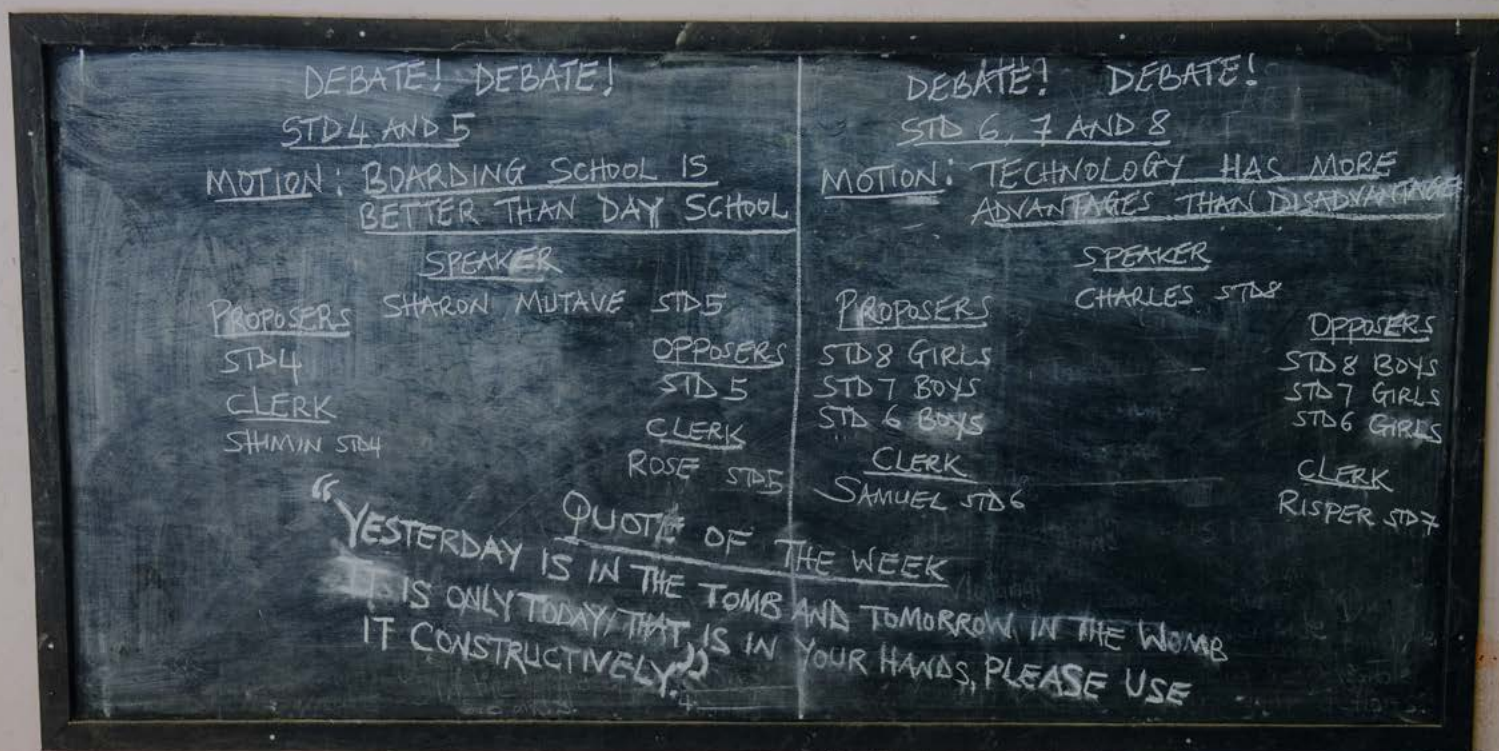 DEBATE! DEBATE!
STD 4 AND 5
MOTION: BOARDING SCHOOL IS
BETTER THAN DAY SCHOOL
SPEAKER
SHARON MUTAVE STD5
PROPOSERS
STD4
CLERK
SHIMIN STD4
OPPOSERS
STD 5
CLERK
ROSE STD5
DEBATE! DEBATE!
STD 6, 7 AND 8
MOTION: TECHNOLOGY HAS MORE
ADVANTAGES THAN DISADVANTAGES
SPEAKER
CHARLES STD8
PROPOSERS
STD8 GIRLS
STD7 BOYS
STD 6 BOYS
CLERK
SAMUEL STD6
OPPOSERS
STD8 BOYS
STD7 GIRLS
STD6 GIRLS
CLERK
RISPER STD7
QUOTE OF THE WEEK
“YESTERDAY IS IN THE TOMB AND TOMORROW IN THE WOMB
IS ONLY TODAY, THAT IS IN YOUR HANDS, PLEASE USE
IT CONSTRUCTIVELY.”